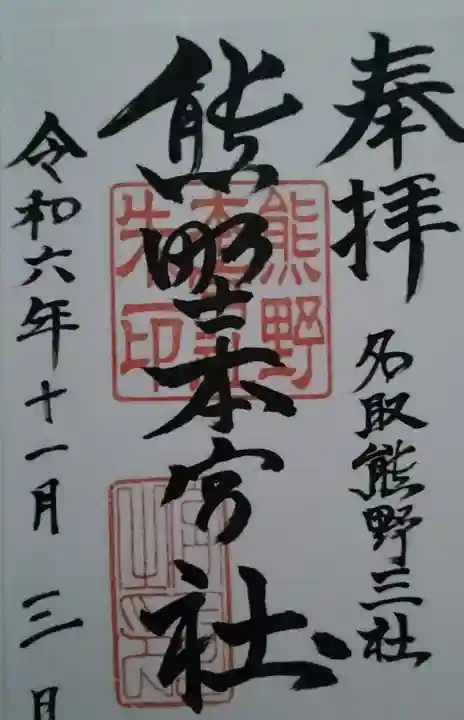 奉拝
名取熊野三社
熊野本宮社
令和六年十一月三日
熊野
朱印